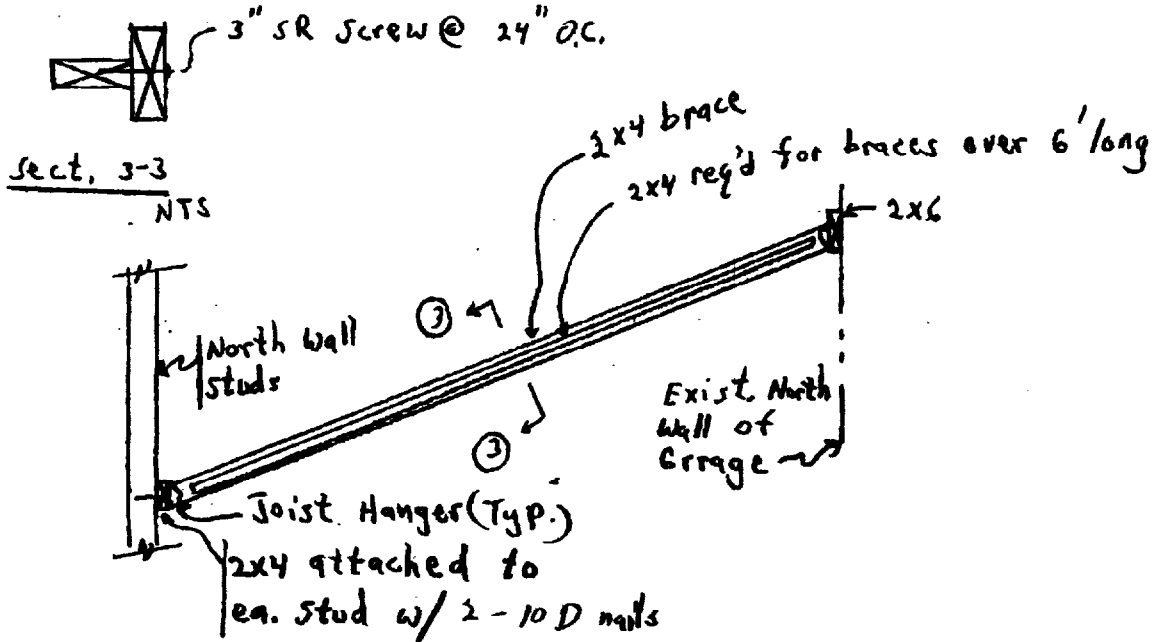 3" SR Screw @ 24" O.C.
Sect. 3-3
NTS
2x4 brace
2x4 req'd for braces over 6' long
2x6
3
North Wall
Studs
Exist. North
Wall of
Grrage
3
Joist Hanger (Typ.)
2x4 attached to
ea. stud w/ 2-10D nails